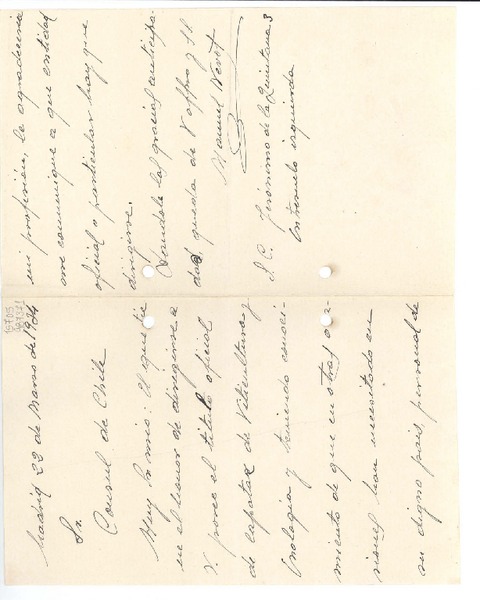 Madrid 23 de Marzo de 1934
Sr.
Consul de Chile
Muy Sr mio: El que tie
ne el honor de dirigirse a
V. posee el titulo oficial
de Capataz de Viticultura y
Enologia y teniendo conoci-
miento de que en otras oca-
siones han necesitado en
su digno pais, personal de
mi profesión, le agradeceria
me comunique a que entidad
oficial o particular hay que
dirigirse.
Dandole las gracias anticipa-
das, queda de V affmo y s.s.
Manuel
S. C. Jerónimo de la Quintana 3
Entresuelo izquierda